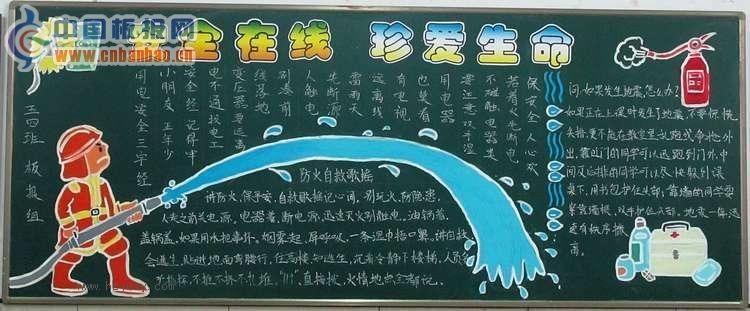 中国板报网
www.cnbanbao.cn
安全在线 珍爱生命
四班 板报组
用电安全三字经
小朋友 年少
安全经 记得牢
电不通 找电工
变压器要远离
线落地
别凑前
人触电
先断源
雷雨天
远离线
有电视
用电器
要注意双手湿
不碰触 电器类
若着火 先断电
保安全 人心欢
防火自救歌谣
讲防火,保平安,自救歌谣记心间,别玩火,防隐患,
人走之前关电源,电器着,断电源,迅速灭火别触电,油锅着,
盖锅盖,如果用水把事坏,烟雾起,屏呼吸,一条湿巾捂口罩。
会逃生,贴进地面弯腰行,住高楼 逃生,沉着冷静下楼梯,人员
不推不挤不扎堆。"119"直播挑,火情地点全都记。
问:如果发生地震,怎么办?
如果正在上课时发生了地震,不要惊慌
失措,更不能在教室里乱跑或争抢外
出,靠近门的同学可以迅跑到门外,中
间及后排的同学可以尽快躲到课
桌下,用书包护住头部;靠墙的同学要
紧靠墙根,双手护住头部。地震一停迅
速有秩序撤
离。